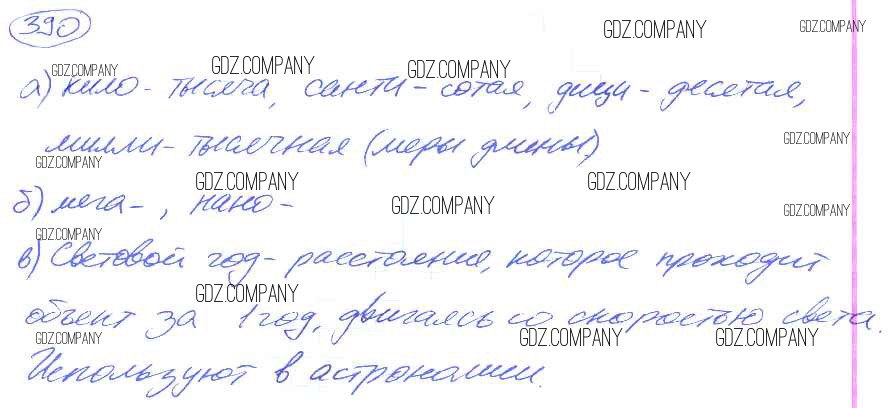 390
GDZ.COMPANY GDZ.COMPANY
GDZ.COMPANY GDZ.COMPANY GDZ.COMPANY
а) кило - тысяча, санти - сотая, деци - десятая,
милли - тысячная (меры длины)
GDZ.COMPANY GDZ.COMPANY
GDZ.COMPANY GDZ.COMPANY
б) мега - , нано -
GDZ.COMPANY GDZ.COMPANY
GDZ.COMPANY
в) Световой год - расстояние, которое проходит
GDZ.COMPANY
объект за 1 год, двигаясь со скоростью света.
GDZ.COMPANY GDZ.COMPANY GDZ.COMPANY
Используют в астрономии.